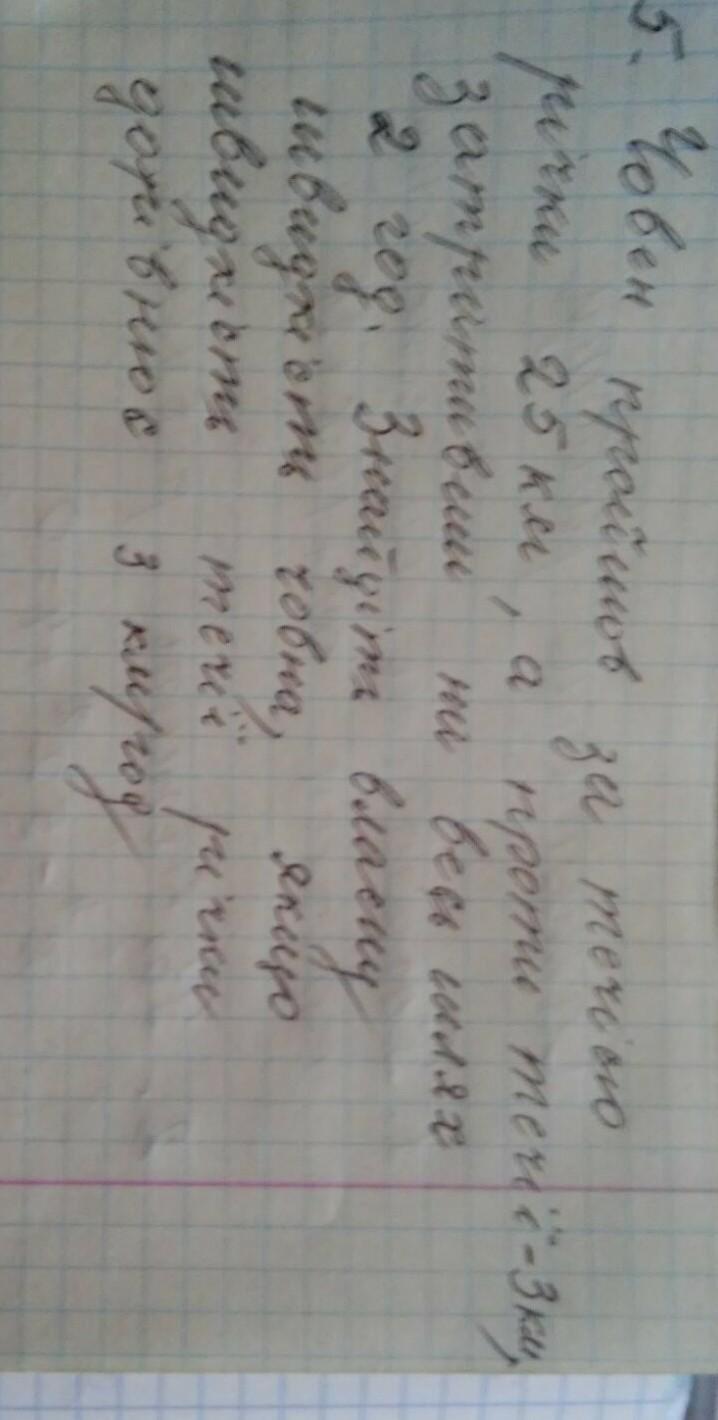 5. Човен пройшов за течією
річки 25 км, а проти течії - 3 км,
затративши на весь шлях
2 год. Знайдіть власну
швидкість човна, якщо
швидкість течії річки
дорівнює 3 км/год